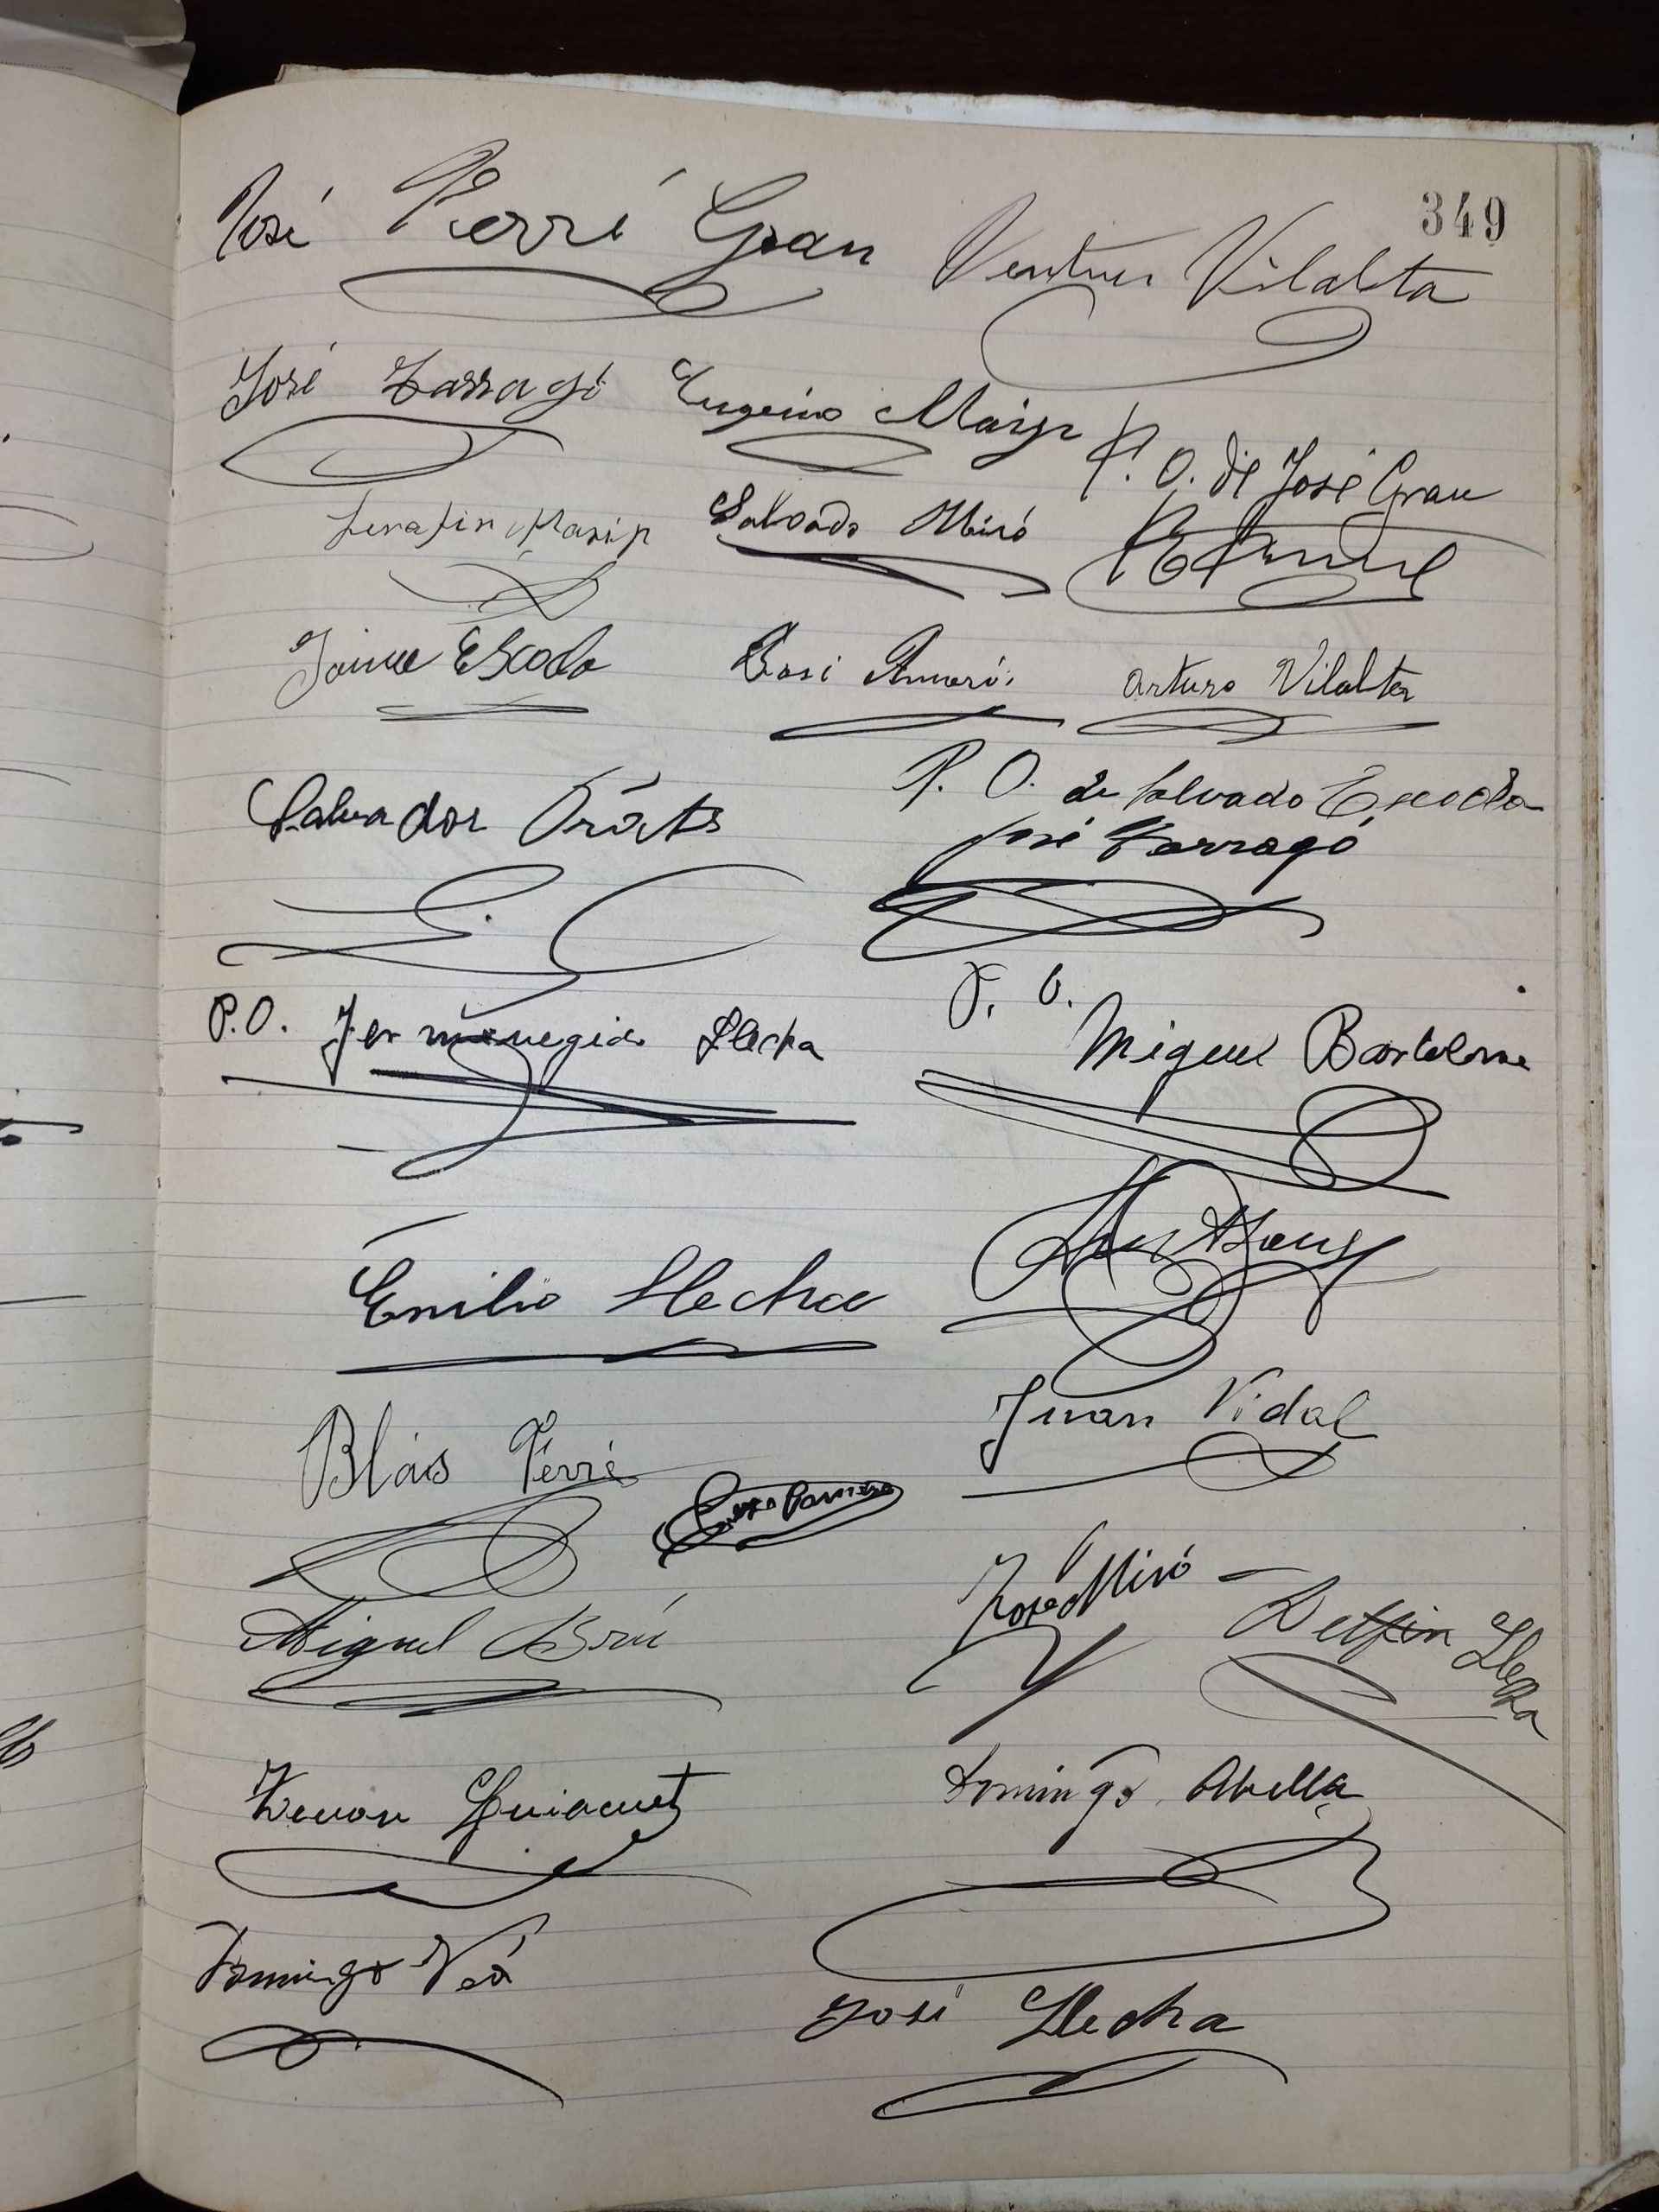 349
José Ferré Grau Ventura Vilalta
José Tarragó Eugenio Masip
P. O. de José Grau
Serafin Masip Salvado Miró
Jaime Escoda José Amorós Arturo Vilalta
Salvador Prats P. O. de Salvado Escoda
José Tarragó
P.O. Jermenegido Llecha P. O.
Miguel Bartolome
Emilio Llecha
Juan Vidal
Blás Ferré
José Miró
Miguel Brú Delfin Llecha
Domingo Abella
Domingo Noá
José Llecha